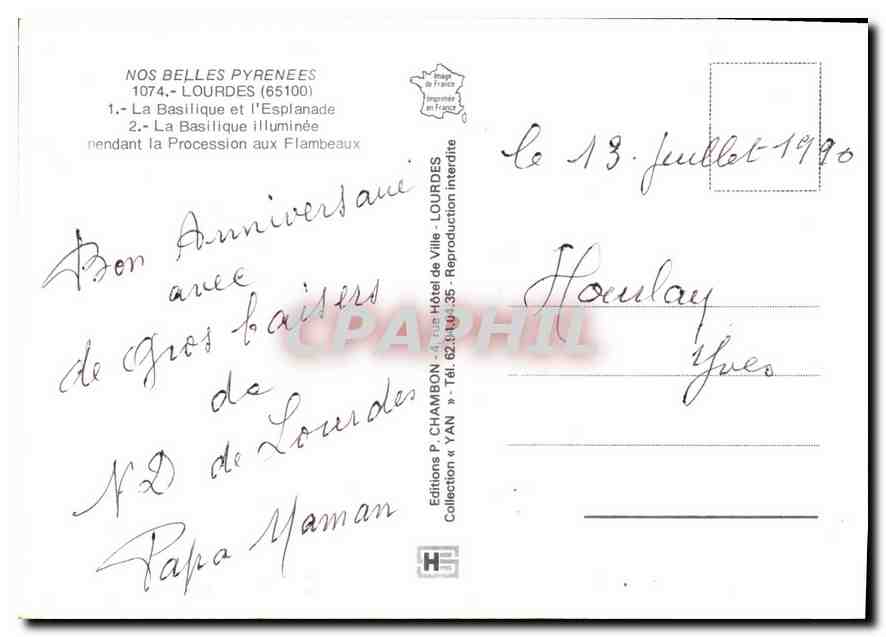 NOS BELLES PYRENEES
1074.- LOURDES (65100)
1.- La Basilique et l'Esplanade
2.- La Basilique illuminée
pendant la Procession aux Flambeaux
Image
de France
Imprimée
en France
le 13. juillet 1990
Bon Anniversaire
avec
de gros baisers
de
ND de Lourdes
Papa Maman
Editions P. CHAMBON - 4, rue Hôtel de Ville - LOURDES
Collection « YAN » - Tél. 62.94.04.35 - Reproduction interdite
Hourlay
Yves
CPAPHIL